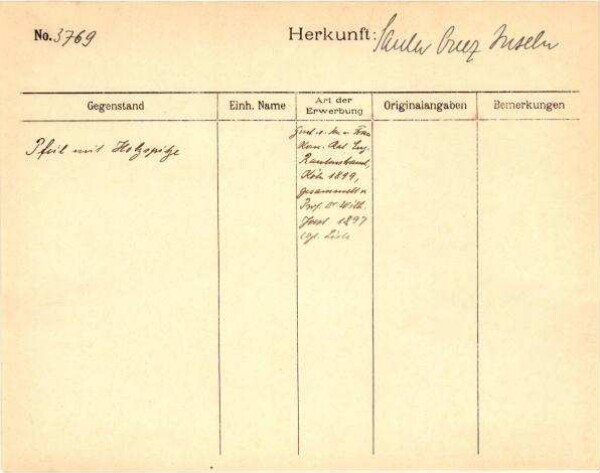 No. 3769 Herkunft: Santa Cruz Inseln
Gegenstand Einh. Name Art der Erwerbung Originalangaben Bemerkungen
Pfeil mit Holzspitze
Gesch. v. Hrn u. Frau
Kom. Rat Eug.
Rautenstrauch,
Köln 1899,
gesammelt v.
Prof. Dr Wilh.
Joest 1897
vgl. Liste